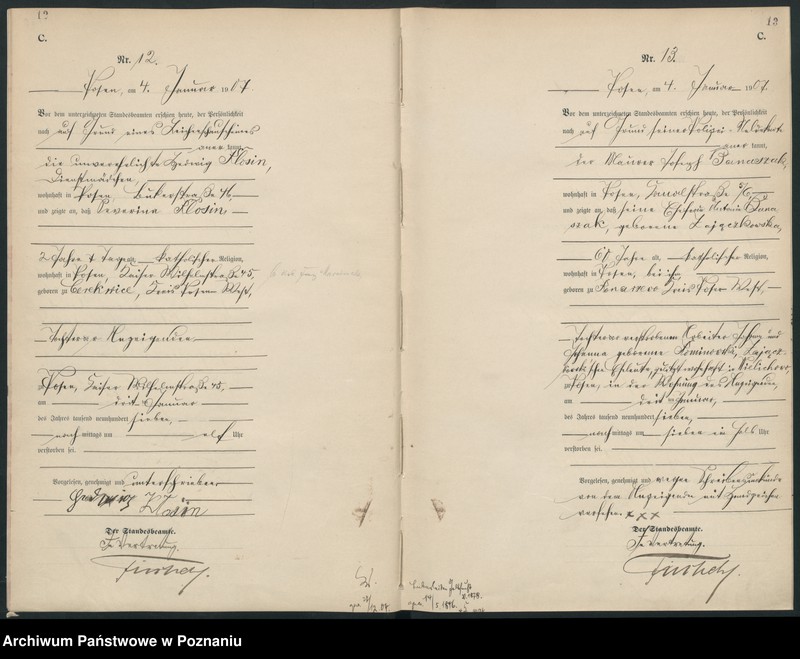 12
C.
Nr. 12.
Posen, am 4. Januar 1907.
Vor dem unterzeichneten Standesbeamten erschien heute, der Persönlichkeit
nach auf Grund eines Leichenschauscheines
anerkannt,
die unverehelichte Hedwig Klosin,
Dienstmädchen,
wohnhaft in Posen, Bukerstraße
und zeigte an, daß Severina Klosin
2 Jahre 4 Tage alt, katholischer Religion,
wohnhaft in Posen, Kaiser Wilhelmstraße 45,
geboren zu Cerekwice, Kreis Posen West,
Tochter der Anzeigenden
Posen, Kaiser Wilhelmstraße 45,
am dritten Januar
des Jahres tausend neunhundert sieben,
nach mittags um elf Uhr
verstorben sei.
Vorgelesen, genehmigt und unterschrieben
Hedwig Klosin
Der Standesbeamte.
In Vertretung.
13
C.
Nr. 13.
Posen, am 4. Januar 1907.
Vor dem unterzeichneten Standesbeamten erschien heute, der Persönlichkeit
nach auf Grund seiner Polizei-Meldekarte
anerkannt,
der Maurer Joseph Banaszak,
wohnhaft in Posen,
und zeigte an, daß seine Ehefrau Antonie Bana
szak, geborene Zajączkowska,
Jahre alt, katholischer Religion,
wohnhaft in Posen, bei ihm,
geboren zu Kreis Posen West,
Tochter des verstorbenen Arbeiter und
geborenen
Eheleute, zuletzt wohnhaft in
zu Posen, in der Wohnung des Anzeigenden,
am dritten Januar,
des Jahres tausend neunhundert sieben,
nach mittags um sieben ein halb Uhr
verstorben sei.
Vorgelesen, genehmigt und wegen Schreibensunkunde
von dem Anzeigenden mit Handzeichen
versehen. xxx
Der Standesbeamte.
In Vertretung.
Archiwum Państwowe w Poznaniu